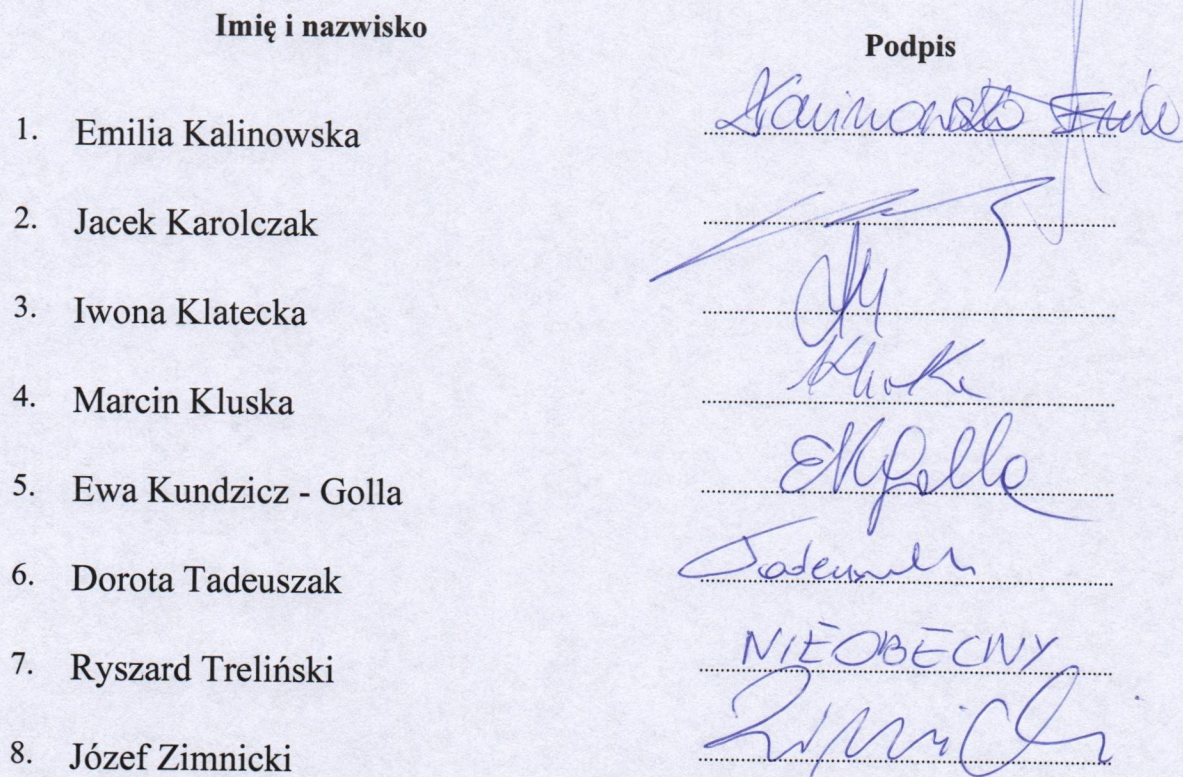 Imię i nazwisko
Podpis
1. Emilia Kalinowska Kalinowska Emilia
2. Jacek Karolczak
3. Iwona Klatecka
4. Marcin Kluska
5. Ewa Kundzicz - Golla EKGolla
6. Dorota Tadeuszak
7. Ryszard Treliński NIEOBECNY
8. Józef Zimnicki